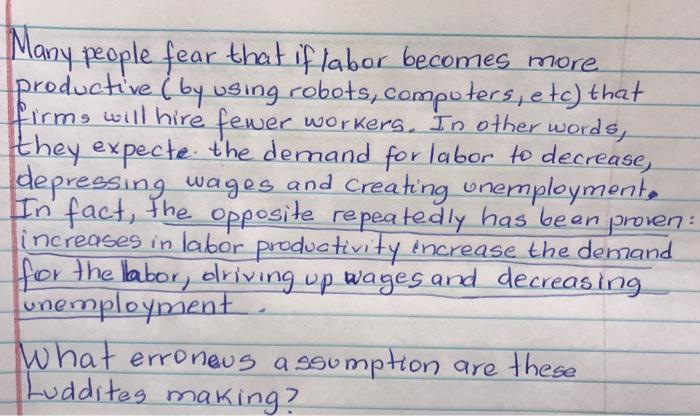 Many people fear that if labor becomes more
productive (by using robots, computers, etc) that
firms will hire fewer workers. In other words,
they expecte. the demand for labor to decrease,
depressing wages and creating unemployment.
In fact, the opposite repeatedly has been proven:
increases in labor productivity increase the demand
for the labor, driving up wages and decreasing
unemployment.
What erroneus assumption are these
Luddites making?